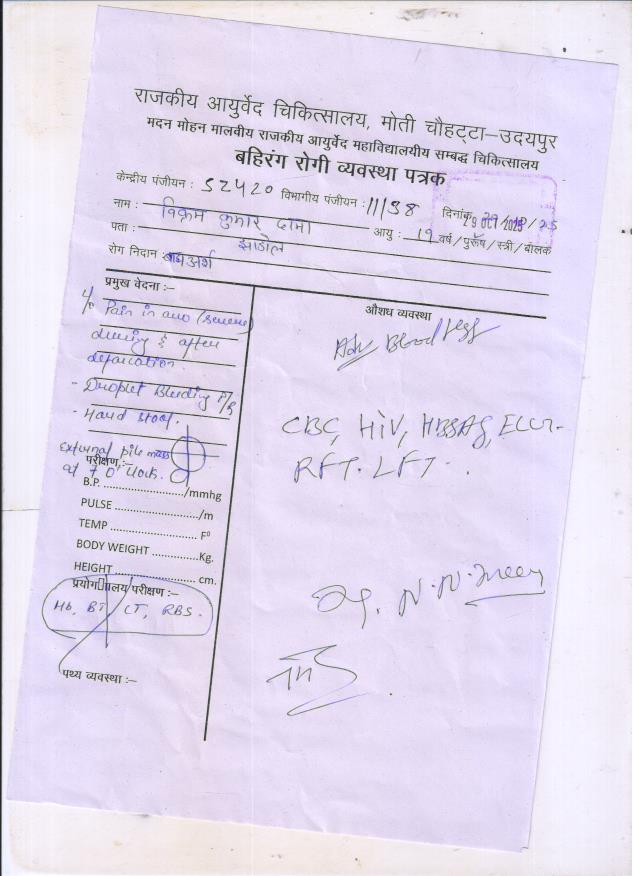 राजकीय आयुर्वेद चिकित्सालय, मोती चौहट्टा–उदयपुर
मदन मोहन मालवीय राजकीय आयुर्वेद महाविद्यालयीय सम्बद्ध चिकित्सालय
बहिरंग रोगी व्यवस्था पत्रक
केन्द्रीय पंजीयन : 52420 विभागीय पंजीयन : 11138 दिनांक
29 OCT 2025
नाम : विक्रम कुमार दामा आयु : 19 वर्ष/पुरूष/स्त्री/बालक
पता : झाडोल
रोग निदान : अर्श
प्रमुख वेदना :–
औशध व्यवस्था
c/o Pain in ano (severe)
during & after
defaecation
- Droplet Bleeding P/R
- Hard stool.
External pile mass
at 7 O'clock.
Adv Blood
CBC, HIV, HBSAg, ECG
RFT. LFT.
परीक्षण :–
B.P. ......................../mmhg
PULSE ........................../m
TEMP .......................... F⁰
BODY WEIGHT ..............Kg.
HEIGHT ........................ cm.
प्रयोगालय परीक्षण :–
Hb, BT, CT, RBS.
पथ्य व्यवस्था :–